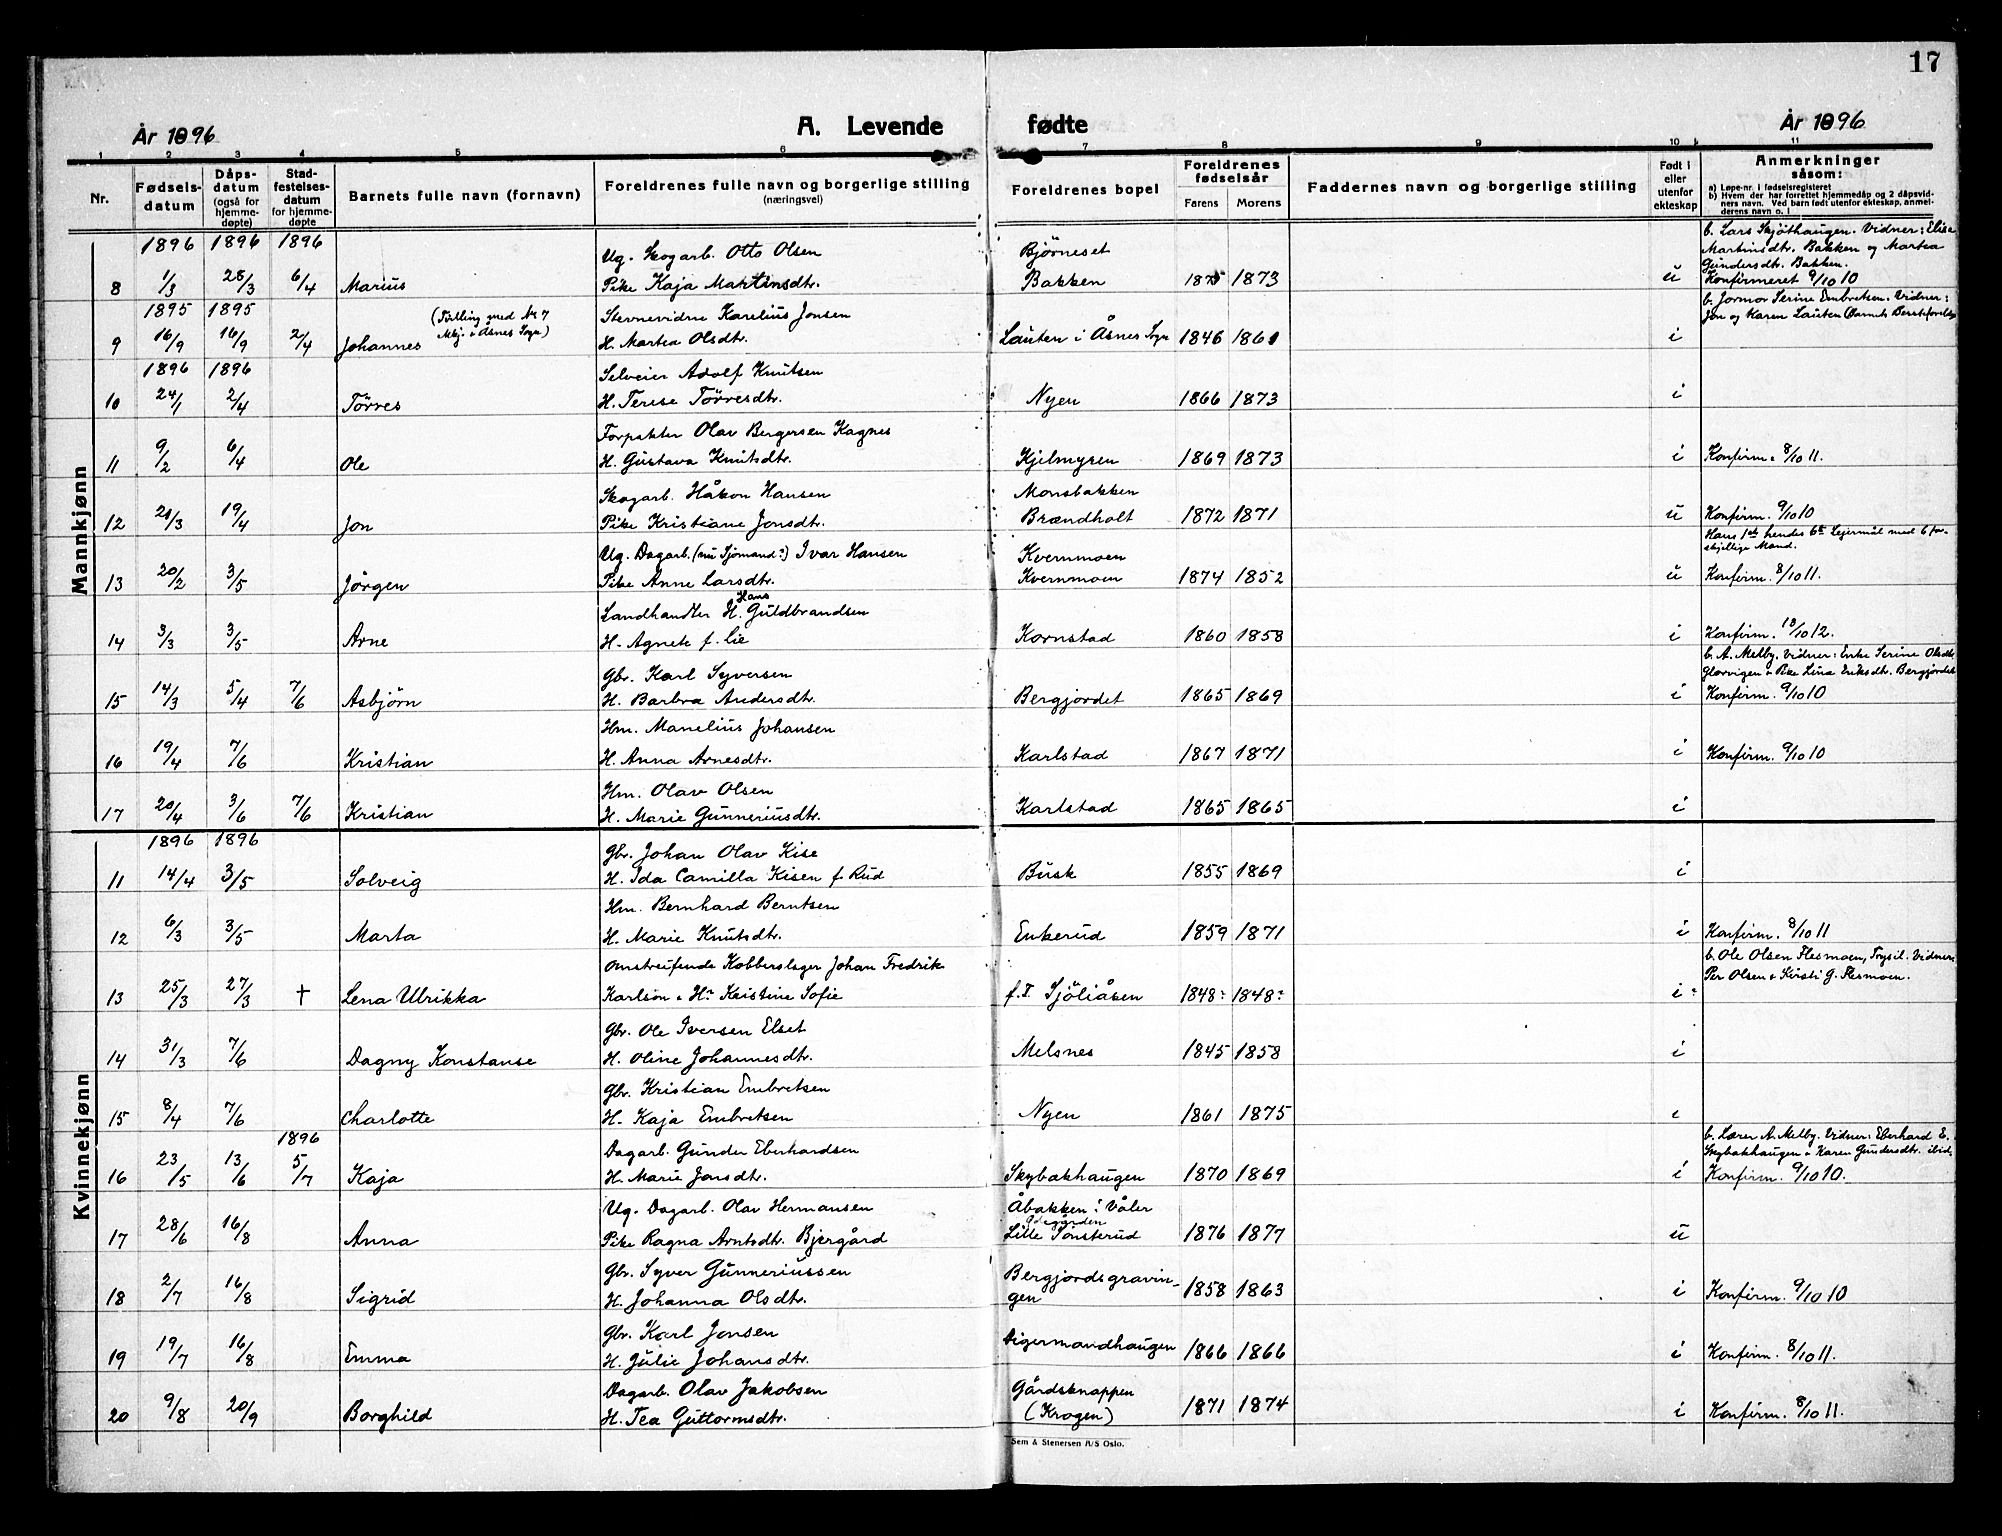 17
År 1896
A. Levende fødte
År 1896
1 2 3 4 5 6 7 8 9 10 11
Nr.
Fødsels-
datum
Dåps-
datum
(også for
hjemme-
døpte)
Stad-
festelses-
datum
for hjemme-
døpte
Barnets fulle navn (fornavn)
Foreldrenes fulle navn og borgerlige stilling
(næringsvei)
Foreldrenes bopel
Foreldrenes
fødselsår
Farens Morens
Faddernes navn og borgerlige stilling
Født i
eller
utenfor
ekteskap
Anmerkninger
såsom:
a) Løpe-nr. i fødselsregisteret
b) Hvem der har forrettet hjemmedåp og 2 dåpsvid-
ners navn. Ved barn født utenfor ekteskap, anmel-
derens navn o. l
Mannkjønn
1896 1896 1896
Ug. Skogarb. Otto Olsen Bjørneset
b. Lars Skjöthaugen. Vidner: Elise
Martinsdtr. Bakken og Martea
Gundersdt. Bakken.
8 1/3 28/3 6/4 Marius Pike Kaja Martinsdtr. Bakken 1875 1873 u Konfirmeret 9/10 10
1895 1895 (Tvilling med Nr 7
Mkj. i Åsnes Sogn)
Stevnevidne Karelius Jonsen
b. Jormor Serine Embretsen. Vidner:
Jon og Karen Lauten (Barnets Besteforeldre
9 16/9 16/9 2/4 Johannes H. Martea Olsdtr. Lauten i Åsnes Sogn 1846 1861 i
1896 1896 Selveier Adolf Knutsen
10 24/1 2/4 Törres H. Terese Törresdtr. Nyen 1866 1873 i
Forpakter Olav Bergersen Kagnes
11 9/2 6/4 Ole H. Gustava Knutsdtr. Kjelmyren 1869 1873 i Konfirm. 8/10 11.
Skogarb. Håkon Hansen Monsbakken
12 21/3 19/4 Jon Pike Kristiane Jonsdtr. Brændholt 1872 1871 u Konfirm. 9/10 10
Ug. Dagarb. (nu Sjömand?) Ivar Hansen Kvernmoen
Hans 1ste hendes 6te Lejermål med 6 for-
skjellige Mand.
13 20/2 3/5 Jörgen Pike Anne Larsdtr. Kvernmoen 1874 1852 u Konfirm. 8/10 11.
Hans
Landhandler H. Guldbrandsen
14 3/3 3/5 Arne H. Agnete f. Lie Kornstad 1860 1858 i Konfirm. 13/10 12.
Gbr. Karl Syversen
b. A. Melby. Vidner: Enke Serine Olsdtr.
Glorvigen & Pike Lina Eriksdtr. Bergjordet
15 14/3 5/4 7/6 Asbjörn H. Barbra Andersdtr. Bergjordet 1865 1869 i Konfirm. 9/10 10
Hm. Manelius Johansen
16 19/4 7/6 Kristian H. Anna Arnesdtr. Karlstad 1867 1871 i Konfirm. 9/10 10
Hm. Olav Olsen
17 20/4 3/6 7/6 Kristian H. Marie Gunneriusdtr. Karlstad 1865 1865 i
Kvinnekjønn
1896 1896 Gbr. Johan Olav Kise
11 14/4 3/5 Solveig H. Ida Camilla Kisen f. Rud Busk 1855 1869 i
Hm. Bernhard Berntsen
12 6/3 3/5 Marta H. Marie Knutsdtr. Enkerud 1859 1871 i Konfirm. 8/10 11
Omstreifende Kobberslager Johan Fredrik
b. Ole Olsen Flesmoen, Trysil. Vidner:
Per Olsen & Kirsti G. Flesmoen.
13 25/3 27/3 † Lena Ulrikka Karlson & Hu Kristine Sofie f.T. Sjöliåsen 1848? 1848? i?
Gbr. Ole Iversen Elset
14 31/3 7/6 Dagny Konstanse H. Oline Johannesdtr. Melsnes 1845 1858 i
Gbr. Kristian Embretsen
15 8/4 7/6 Charlotte H. Kaja Embretsen Nyen 1861 1875 i
1896 Dagarb. Gunder Eberhardsen
b. Lærer A. Melby. Vidner: Eberhard E.
Skybakhaugen & Karen Gundersdtr. ibid.
16 23/5 13/6 5/7 Kaja H. Marie Jonsdtr. Skybakhaugen 1870 1869 i Konfirm. 9/10 10.
Ug. Dagarb. Olav Hermansen Åbakken i Våler
17 28/6 16/8 Anna Pike Ragna Arntsdtr. Bjergård Lille Tönsterud 1876 1877 u
Gbr. Syver Gunneriussen Bergjordsgravin-
18 2/7 16/8 Sigrid H. Johanna Olsdtr. gen 1858 1863 i Konfirm. 9/10 10
Gbr. Karl Jonsen
19 19/7 16/8 Emma H. Julie Johansdtr. Digermandhaugen 1866 1866 i Konfirm. 8/10 11.
Dagarb. Olav Jakobsen Gårdsknappen
20 9/8 20/9 Borghild H. Tea Guttormsdtr. (Krogen) 1871 1874 i Konfirm. 8/10 11.
Sem & Stenersen A/S Oslo.